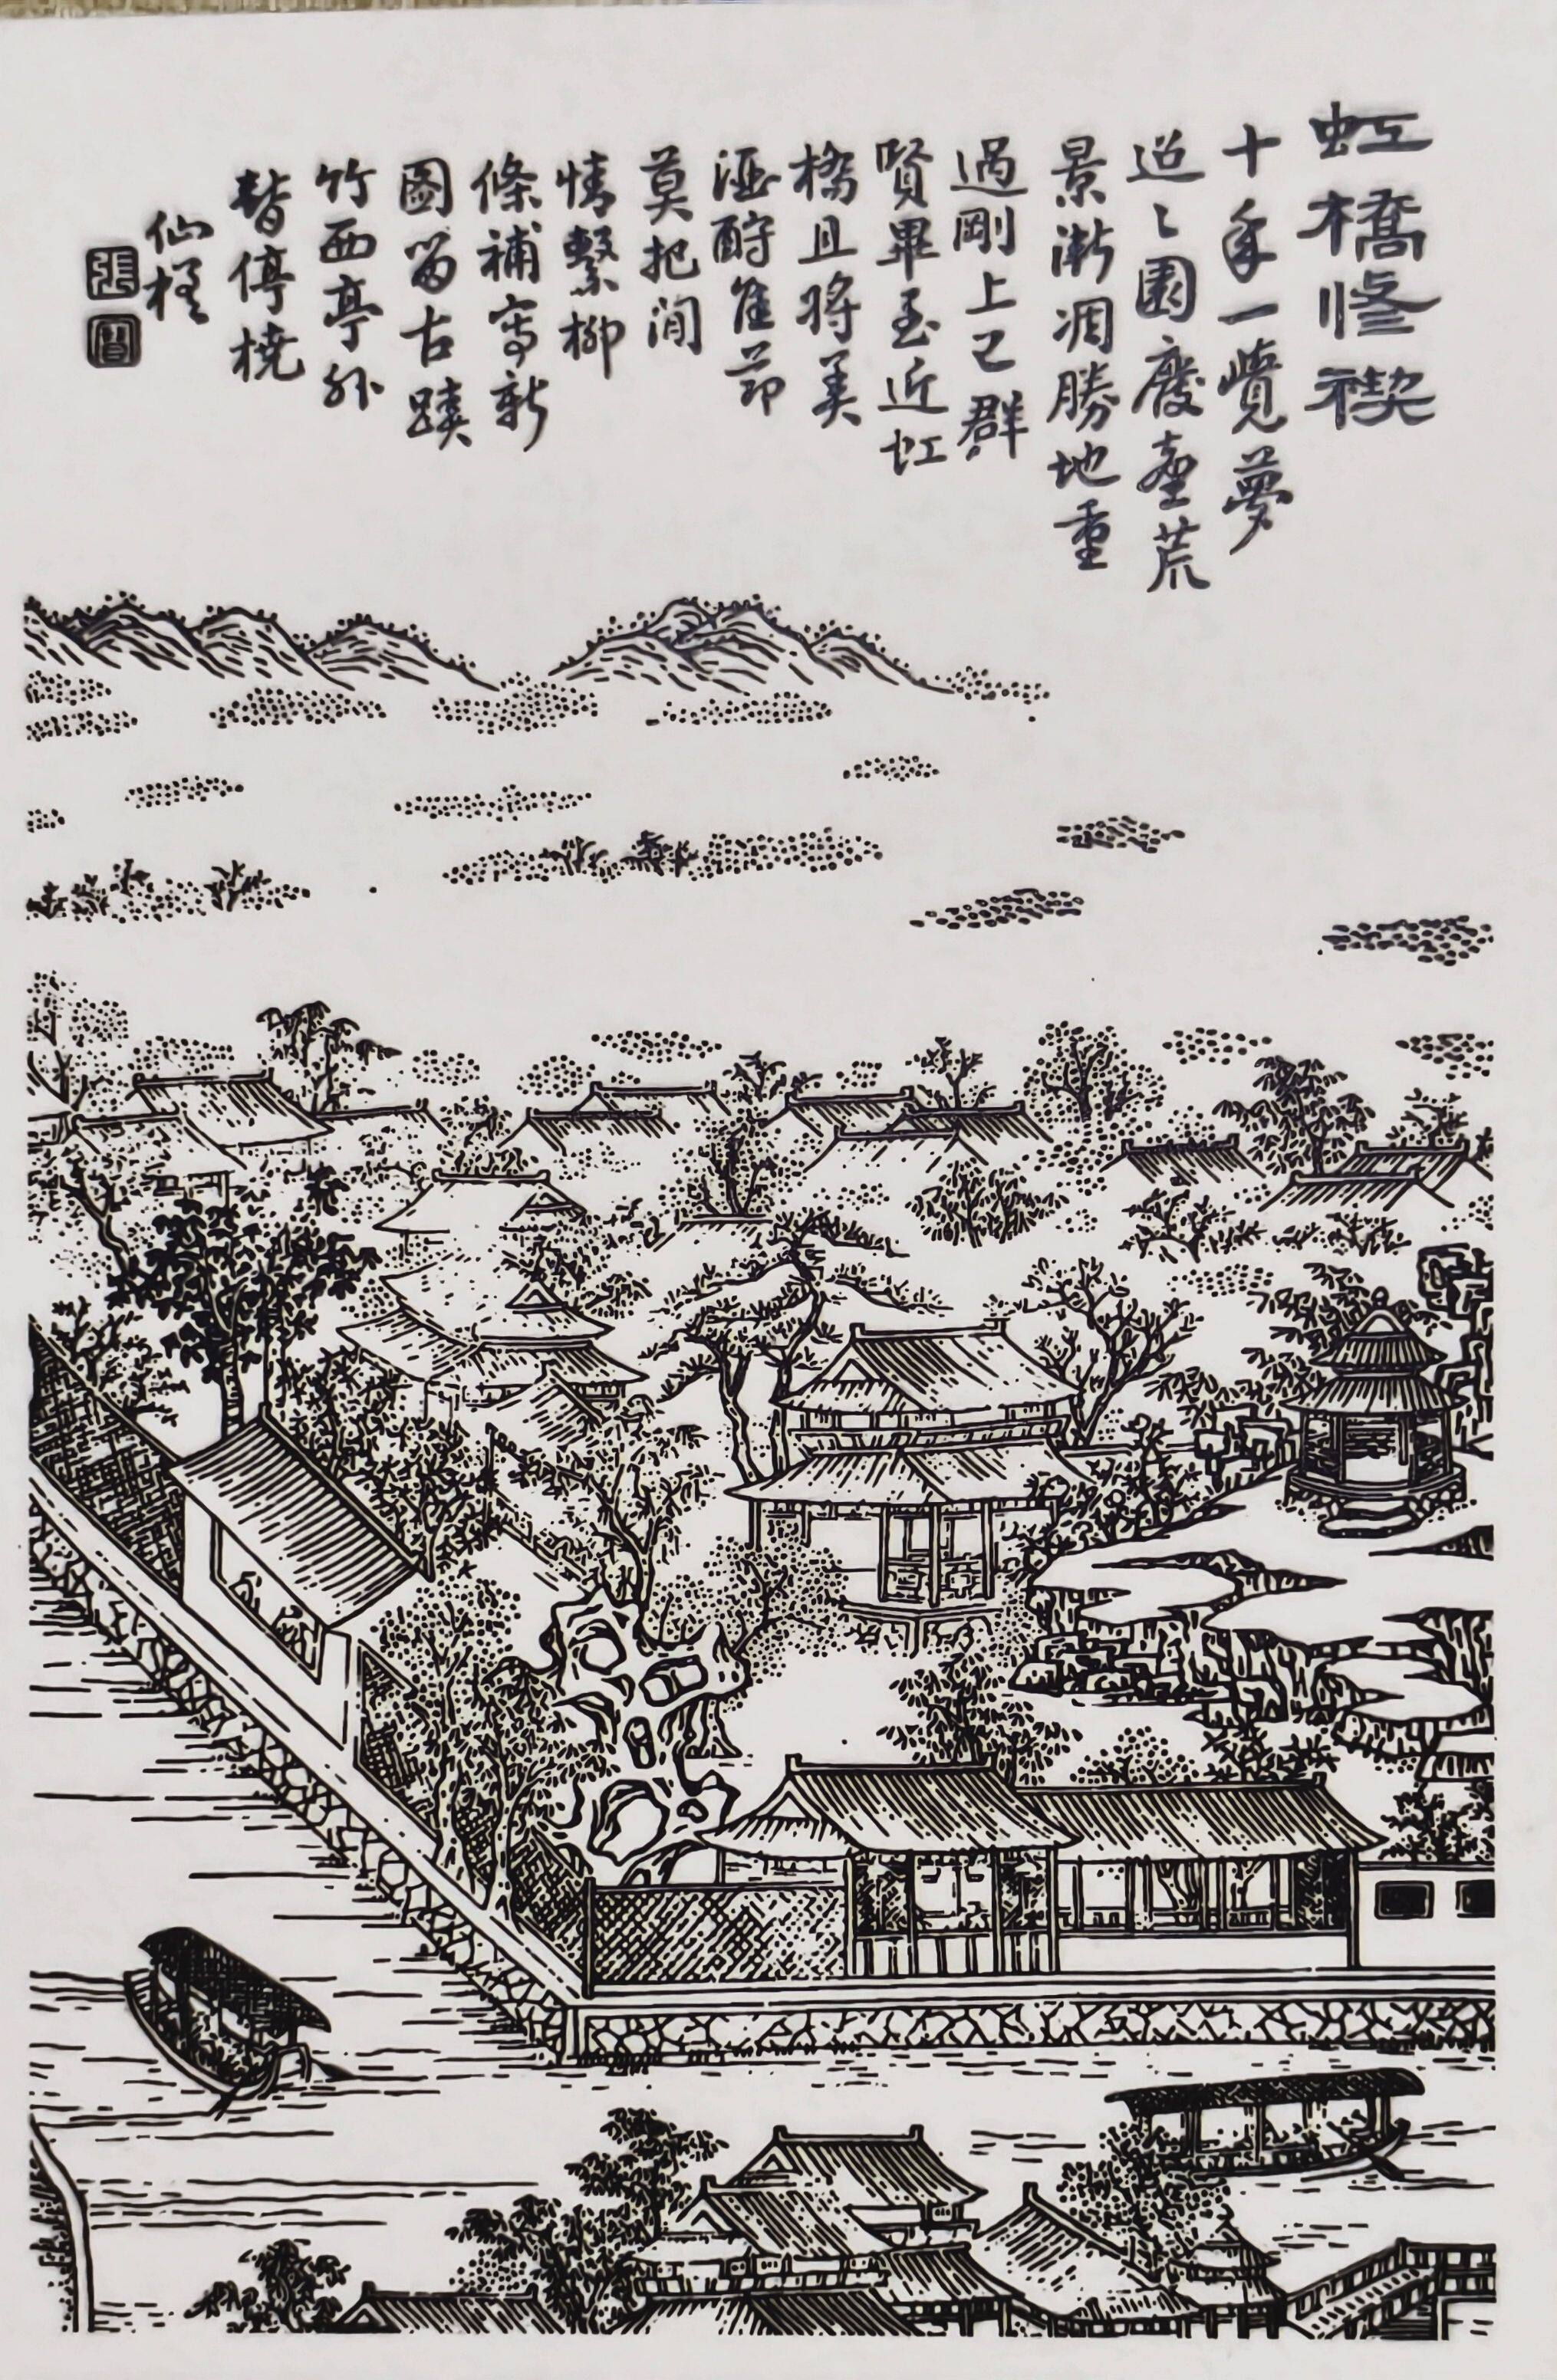 虹橋修禊
十年一覺夢
迢〻園廢臺荒
景漸凋勝地重
過剛上巳群
賢畢至近虹
橋且將美
酒酧佳節
莫把閒
情繫柳
條補寫新
圖留古蹟
竹西亭外
暫停橈
仙槎
張